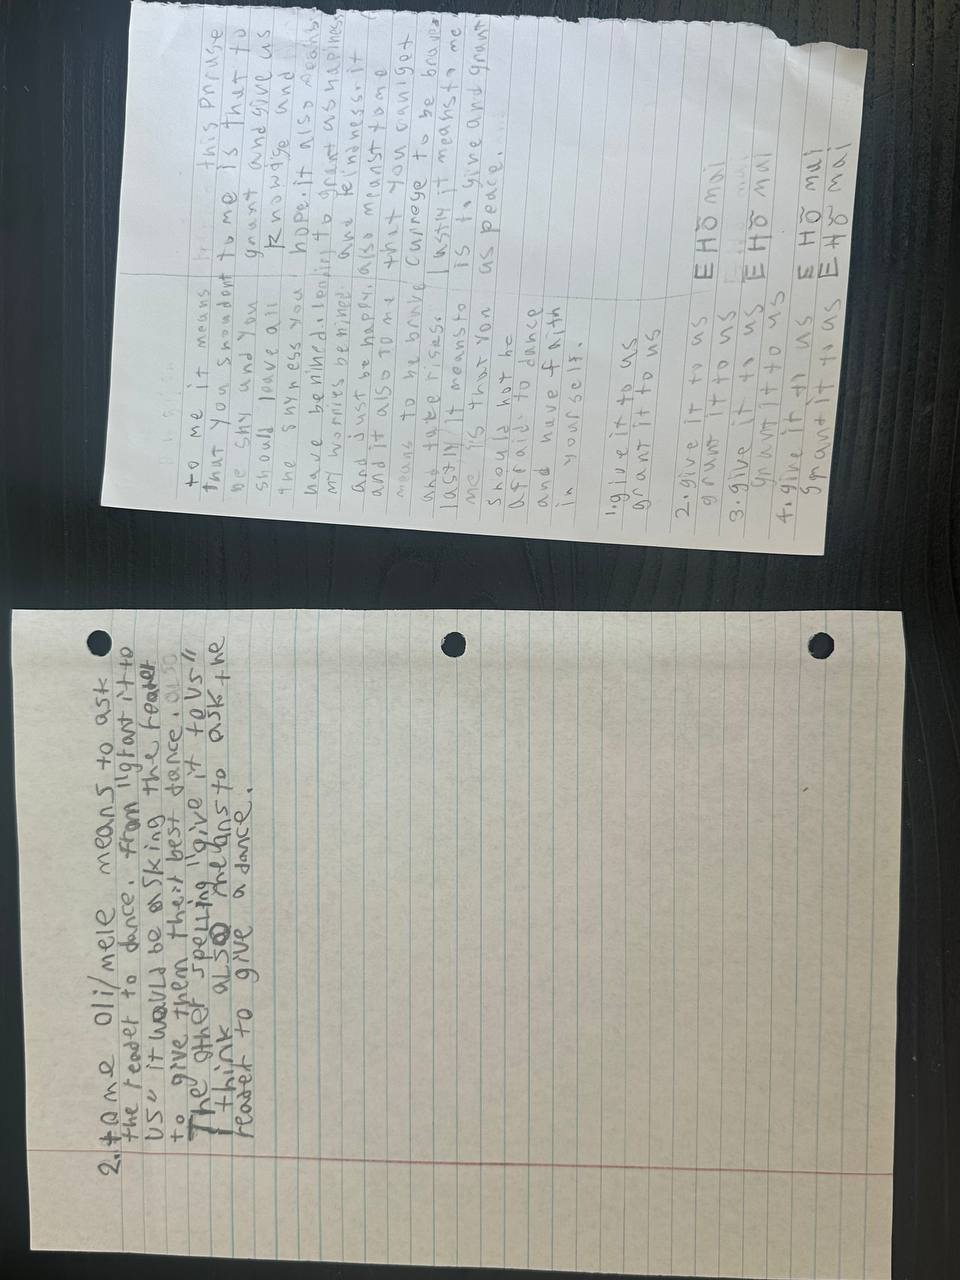 2. to me oli/mele means to ask
the reader to dance. from "grant it to
us" it would be asking the reader
to give them their best dance. also
The other spelling "give it to us"
I think also means to ask the
reader to give a dance.
to me it means
that you shouldent
be shy and you
should leave all
the shyness you
have behined.
my worries behined.
and just be happy.
and it also to me
means to be brave
and take rises.
lastly it means to
me is that you
should not be
afraid to dance
and have faith
in yourself.
this phrase
to me is that to
grant and give us
knowlge and
hope. it also means
to grant us hapiness
and kindness. it
also meanst to me
that you can get
curreye to be brave.
lastly it meanst to me
is to give and grant
us peace....
1. give it to us
grant it to us
2. give it to us EHō mai
grant it to us
3. give it to us EHō mai
grant it to us
4. give it to us EHō mai
grant it to us EHō mai